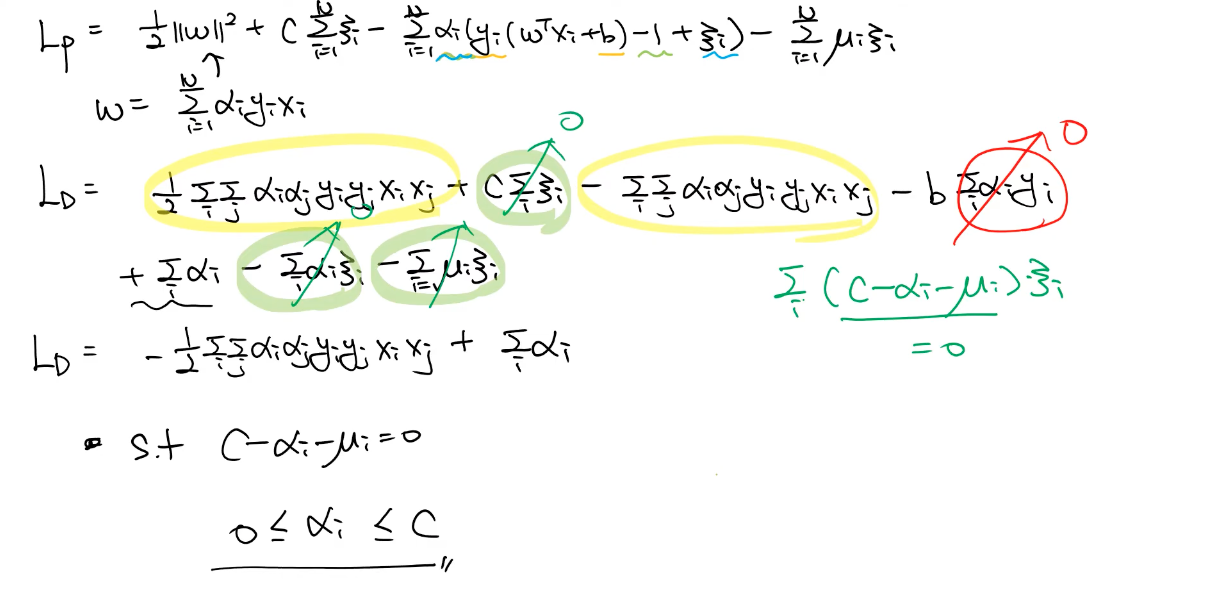 Lp = ½||w||² + C Σᵢ₌₁ᴺ ξᵢ − Σᵢ₌₁ᴺ αᵢ(yᵢ(wᵀxᵢ+b)−1+ξᵢ) − Σᵢ₌₁ᴺ μᵢξᵢ
w = Σᵢ₌₁ᴺ αᵢyᵢxᵢ
0
0
L_D = ½ Σᵢ Σⱼ αᵢαⱼyᵢyⱼxᵢxⱼ + C Σᵢ ξᵢ − Σᵢ Σⱼ αᵢαⱼyᵢyⱼxᵢxⱼ − b Σᵢ αᵢyᵢ
0
+ Σᵢ αᵢ − Σᵢ αᵢξᵢ − Σᵢ₌₁ μᵢξᵢ
Σᵢ (C−αᵢ−μᵢ)ξᵢ
= 0
L_D = −½ Σᵢ Σⱼ αᵢαⱼyᵢyⱼxᵢxⱼ + Σᵢ αᵢ
s.t C−αᵢ−μᵢ=0
0 ≤ αᵢ ≤ C